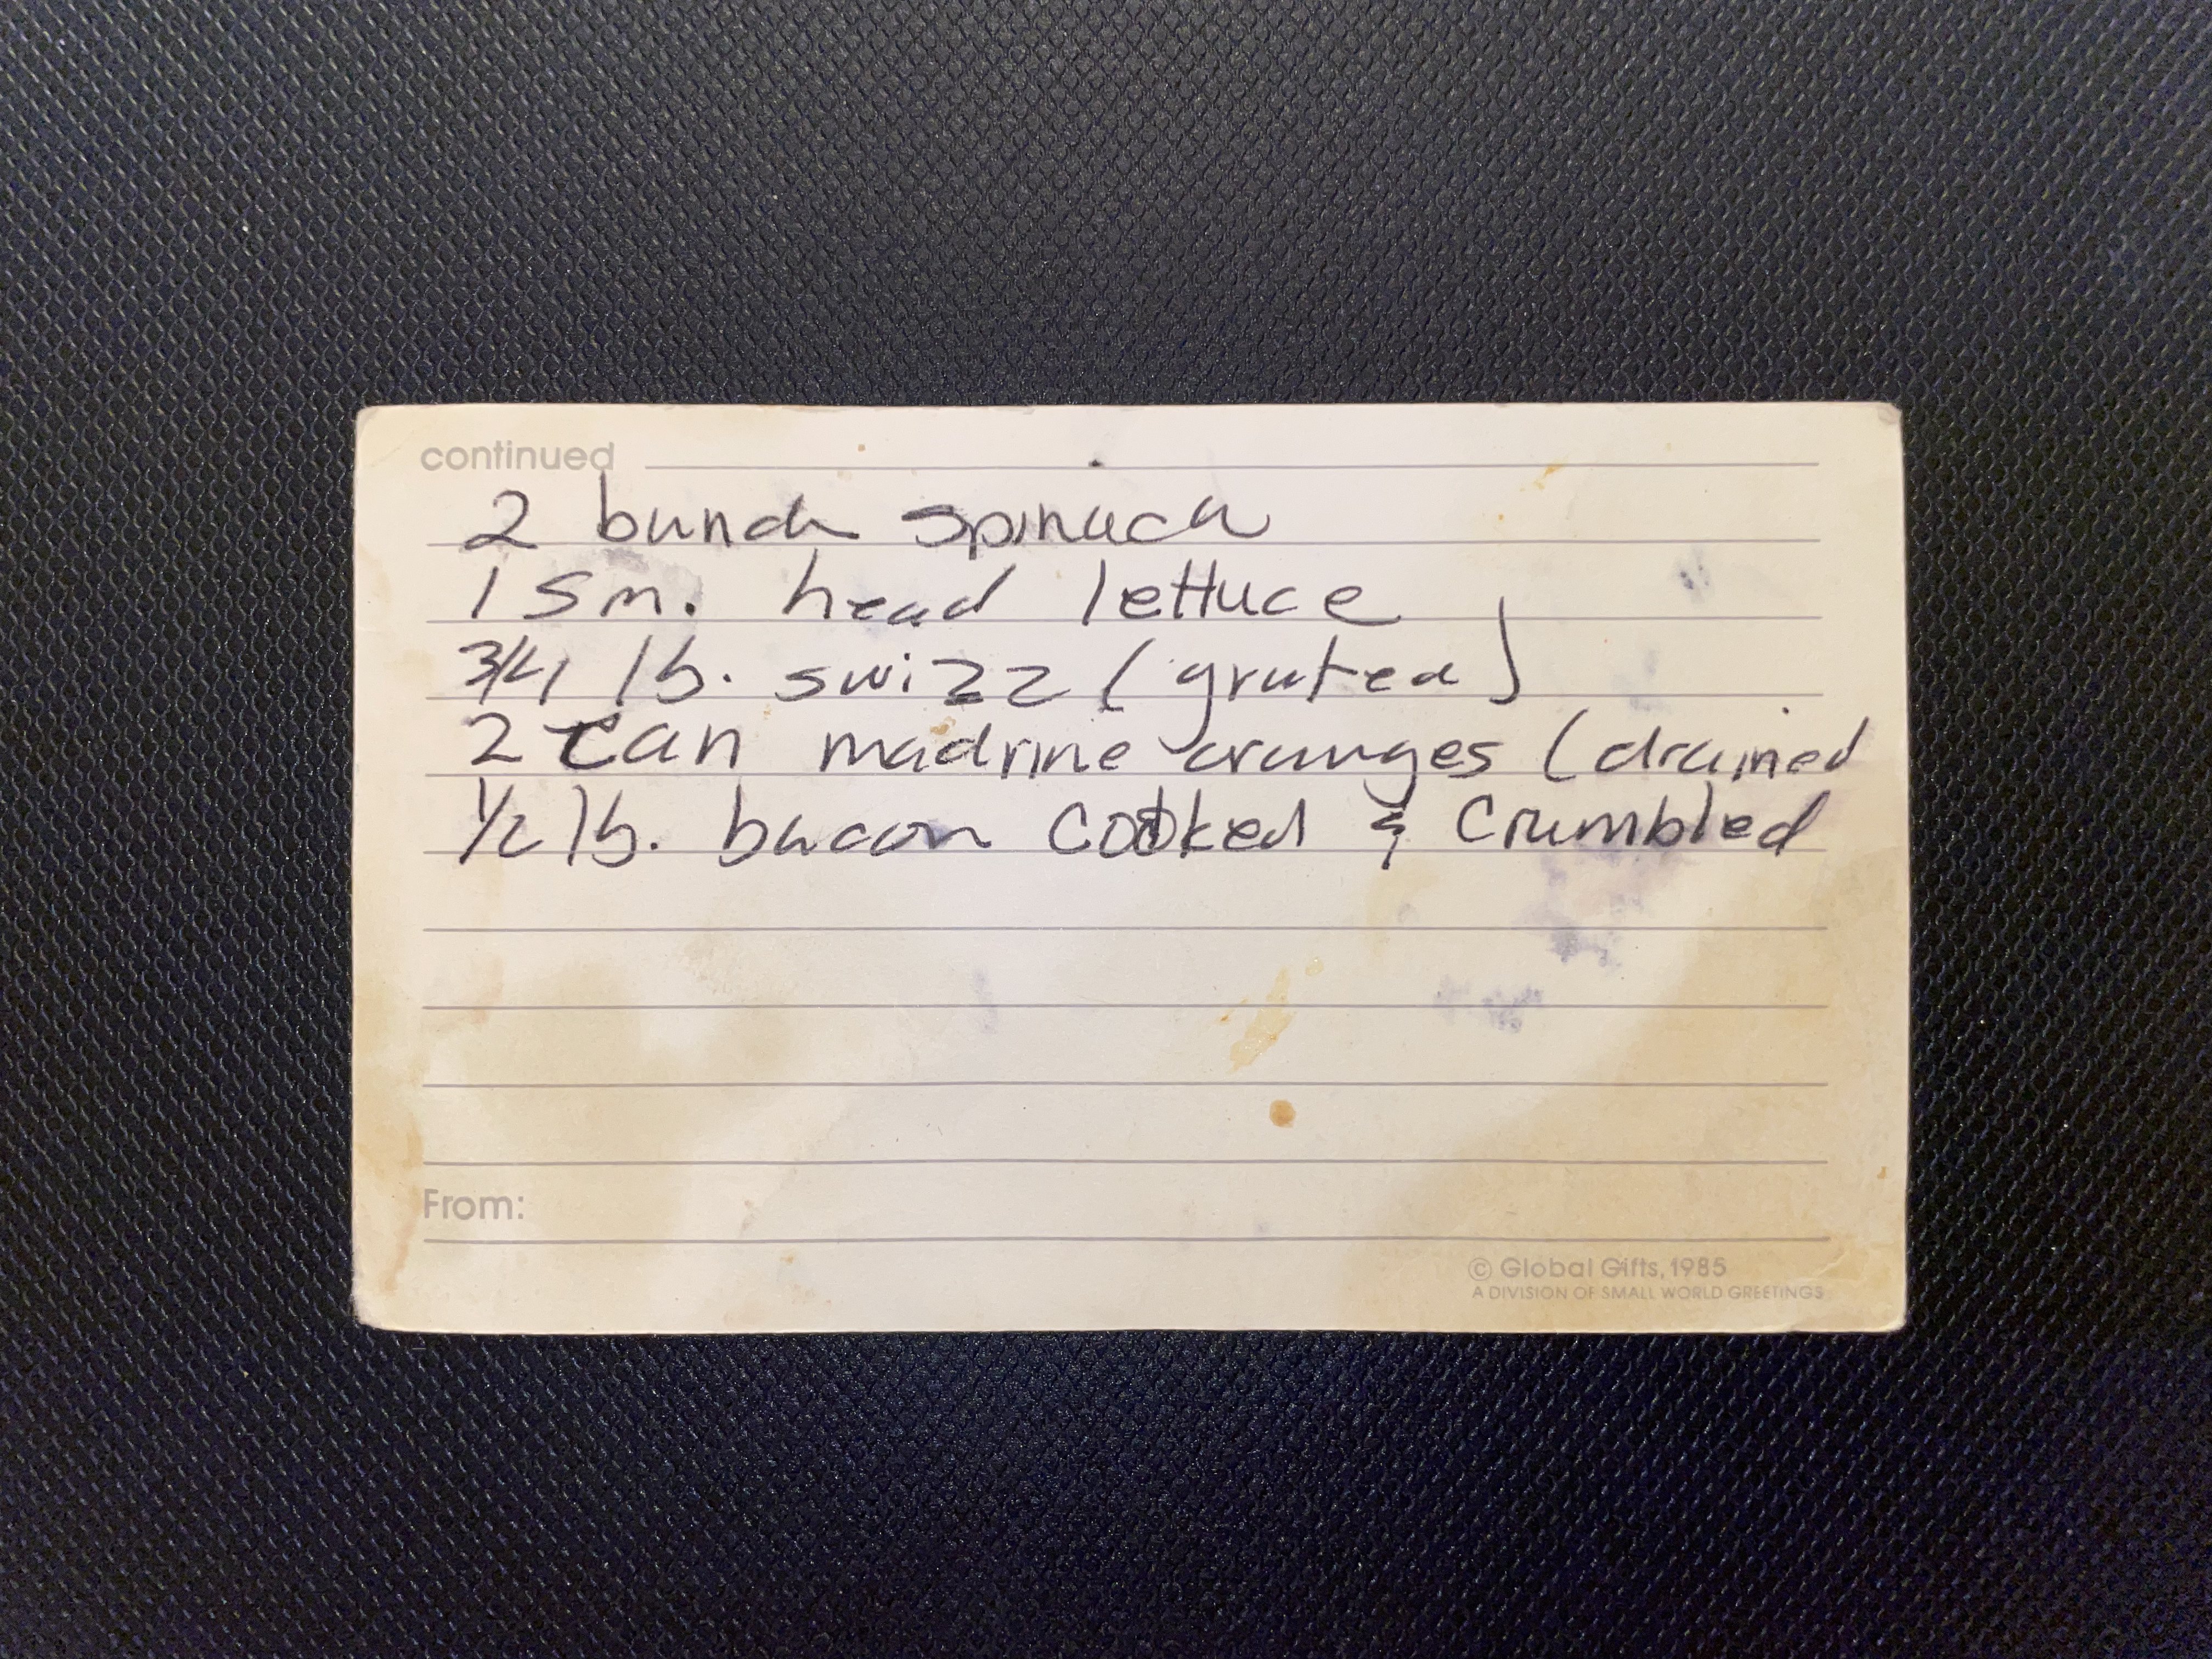 continued
2 bunch spinach
1 sm. head lettuce
3/4 lb. swizz (grated)
2 can madrine oranges (drained
1/2 lb. bacon cooked & crumbled
From:
© Global Gifts, 1985
A DIVISION OF SMALL WORLD GREETINGS